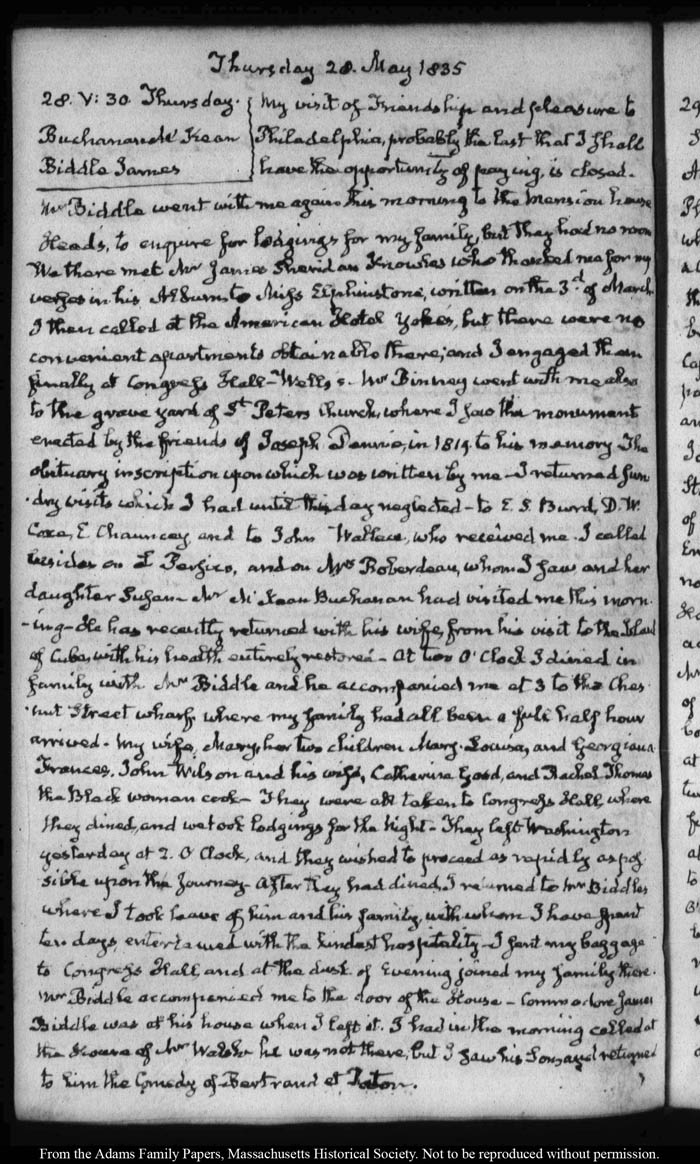 Thursday 28. May 1835
28. V: 30. Thursday.
Buchanan Mc Kean
Biddle James
My visit of Friendship and pleasure to
Philadelphia, probably the last that I shall
have the opportunity of paying, is closed.
Mr Biddle went with me again this morning to the Mansion house
Head's, to enquire for lodgings for my family, but they had no room
We there met Mr James Sheridan Knowles who thanked me for my
verses in his Album to Miss Elphinstone, written on the 3d of March
I then called at the American Hotel Yokes, but there were no
convenient apartments obtainable there; and I engaged them
finally at Congress Hall - Wells's. Mr Binney went with me also
to the grave yard of St Peters Church, where I saw the monument
erected by the friends of Joseph Dennie, in 1819 to his memory The
obituary inscription upon which was written by me - I returned sun
dry visits which I had until this day neglected - to E. S. Burd, D. W.
Coxe, E. Chauncey, and to John Wallace, who received me. I called
besides on Persico, and on Mrs Roberdeau, whom I saw and her
daughter Susan. Mr McKean Buchanan had visited me this morn
-ing - He has recently returned with his wife, from his visit to the Island
of Cuba, with his health entirely restored - At two O'Clock I dined in
family with Mr Biddle and he accompanied me at 3 to the Ches
nut Street wharf where my family had all been a full half hour
arrived. My wife, Mary, her two children Mary-Louisa, and Georgiana
Frances, John Wilson and his wife, Catherine and Rachel Thomas
the Black woman cook - They were all taken to Congress Hall, where
they dined, and we took lodgings for the Night - They left Washington
yesterday at 2. O'Clock, and they wished to proceed as rapidly as pos
sible upon the Journey - After they had dined, I returned to Mr Biddle's
where I took leave of him and his family, with whom I have spent
ten days, entertained with the kindest hospitality - I sent my baggage
to Congress Hall, and at the dusk of Evening joined my family there.
Mr Biddle accompanied me to the door of the House - Commodore James
Biddle was at his house when I left it. I had in the morning called at
the house of Mr Walsh he was not there, but I saw his Son, and returned
to him the Comedy of Bertrand et Raton.
From the Adams Family Papers, Massachusetts Historical Society. Not to be reproduced without permission.